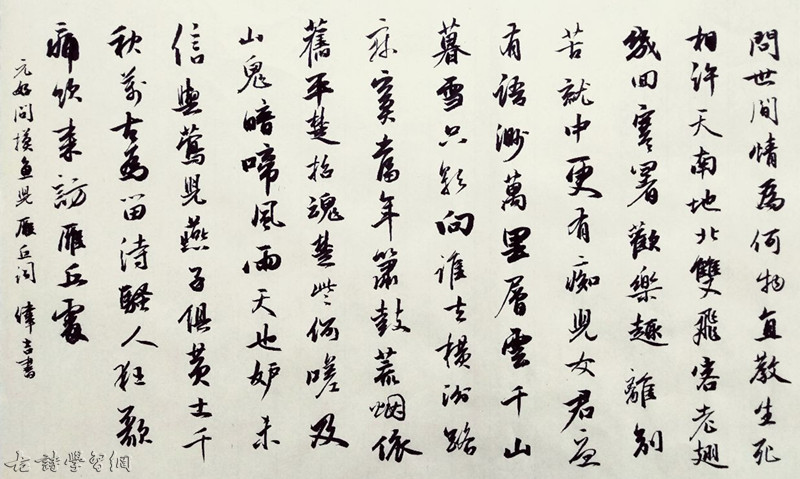 問世間情為何物直教生死
相許天南地北雙飛客老翅
幾回寒暑歡樂趣離別
苦就中更有痴兒女君應
有語渺萬里層雲千山
暮雪只影向誰去橫汾路
寂寞當年簫鼓荒烟依
舊平楚招魂楚些何嗟及
山鬼暗啼風雨天也妒未
信與鶯兒燕子俱黃土千
秋萬古為留待騷人狂歌
痛飲來訪雁丘處
元好問摸魚兒雁丘詞 偉吉書